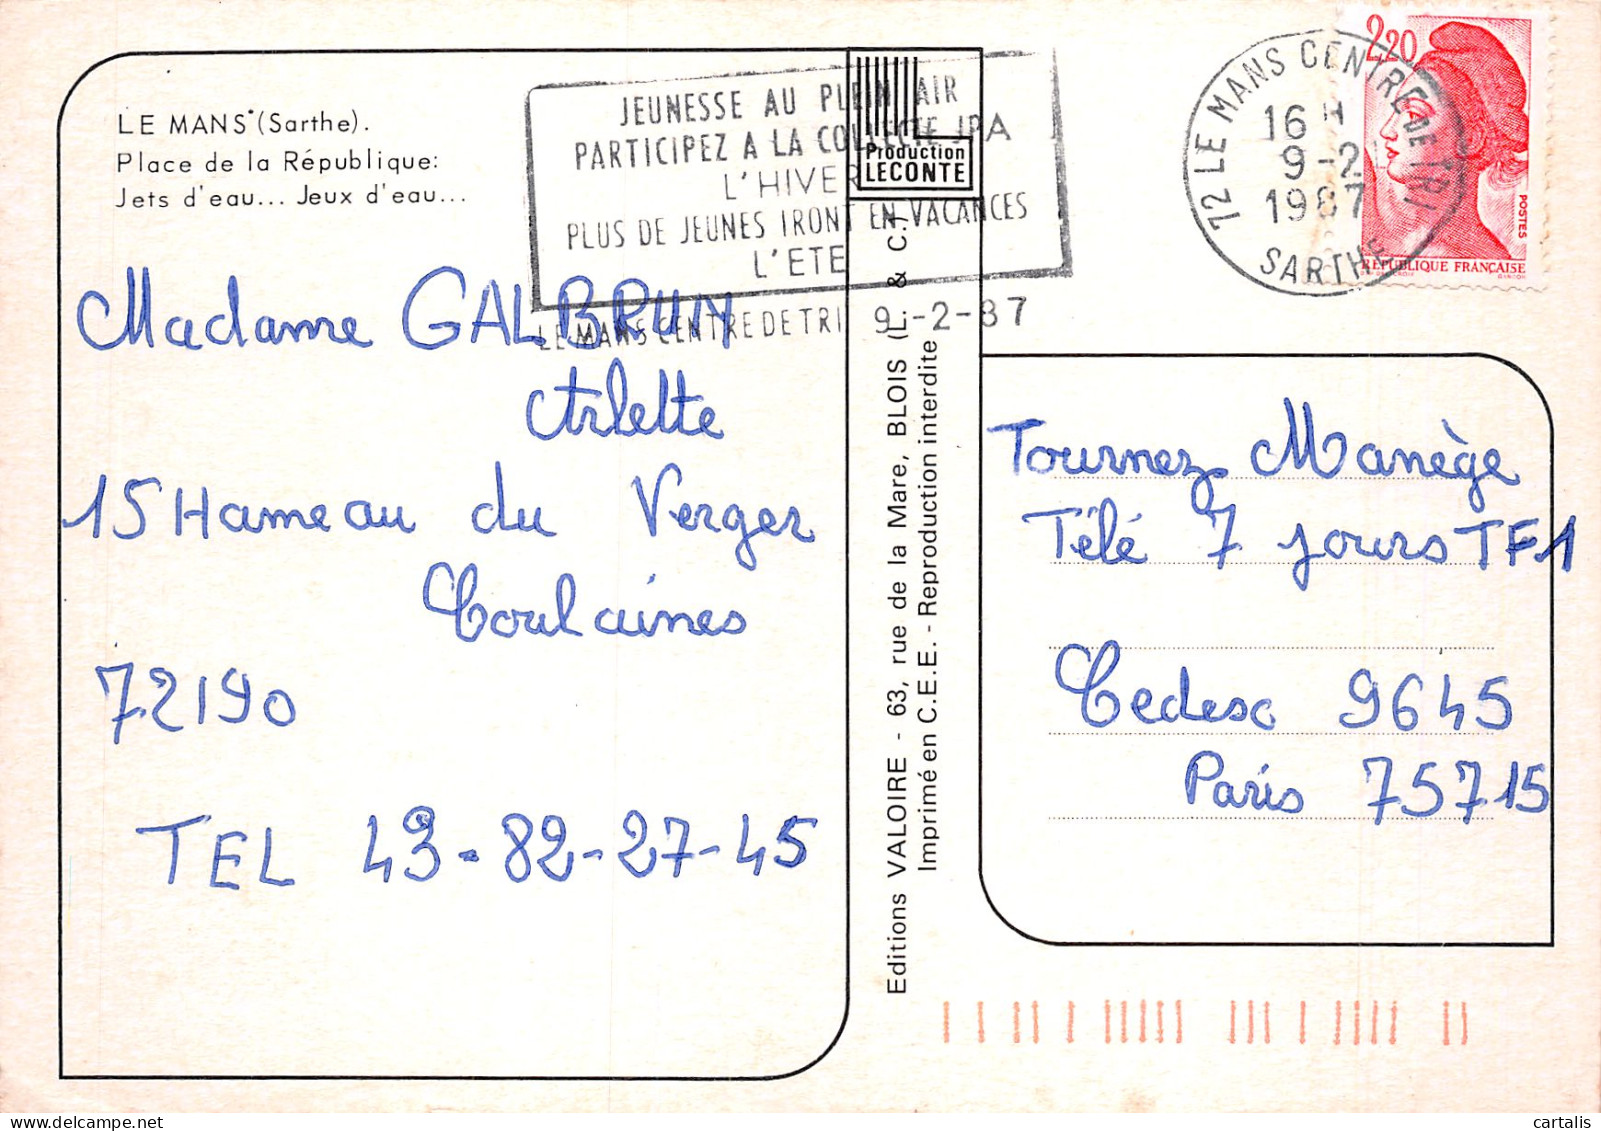 LE MANS (Sarthe).
Place de la République:
Jets d'eau... Jeux d'eau...
JEUNESSE AU PLEIN AIR
PARTICIPEZ A LA COLLECTE JPA
L'HIVER
PLUS DE JEUNES IRONT EN VACANCES
L'ETE
LE MANS CENTRE DE TRI 9-2-87
Production
LECONTE
72 LE MANS CENTRE DE TRI
16 H
9-2
1987
SARTHE
2,20
POSTES
RÉPUBLIQUE FRANÇAISE
Madame GALBRUN
Arlette
15 Hameau du Verger
Coulaines
72190
TEL 43-82-27-45
Editions VALOIRE - 63, rue de la Mare, BLOIS (L. & C.)
Imprimé en C.E.E. - Reproduction interdite
Tournez Manège
Télé 7 jours TF1
Cedesc 9645
Paris 75715
cartalis